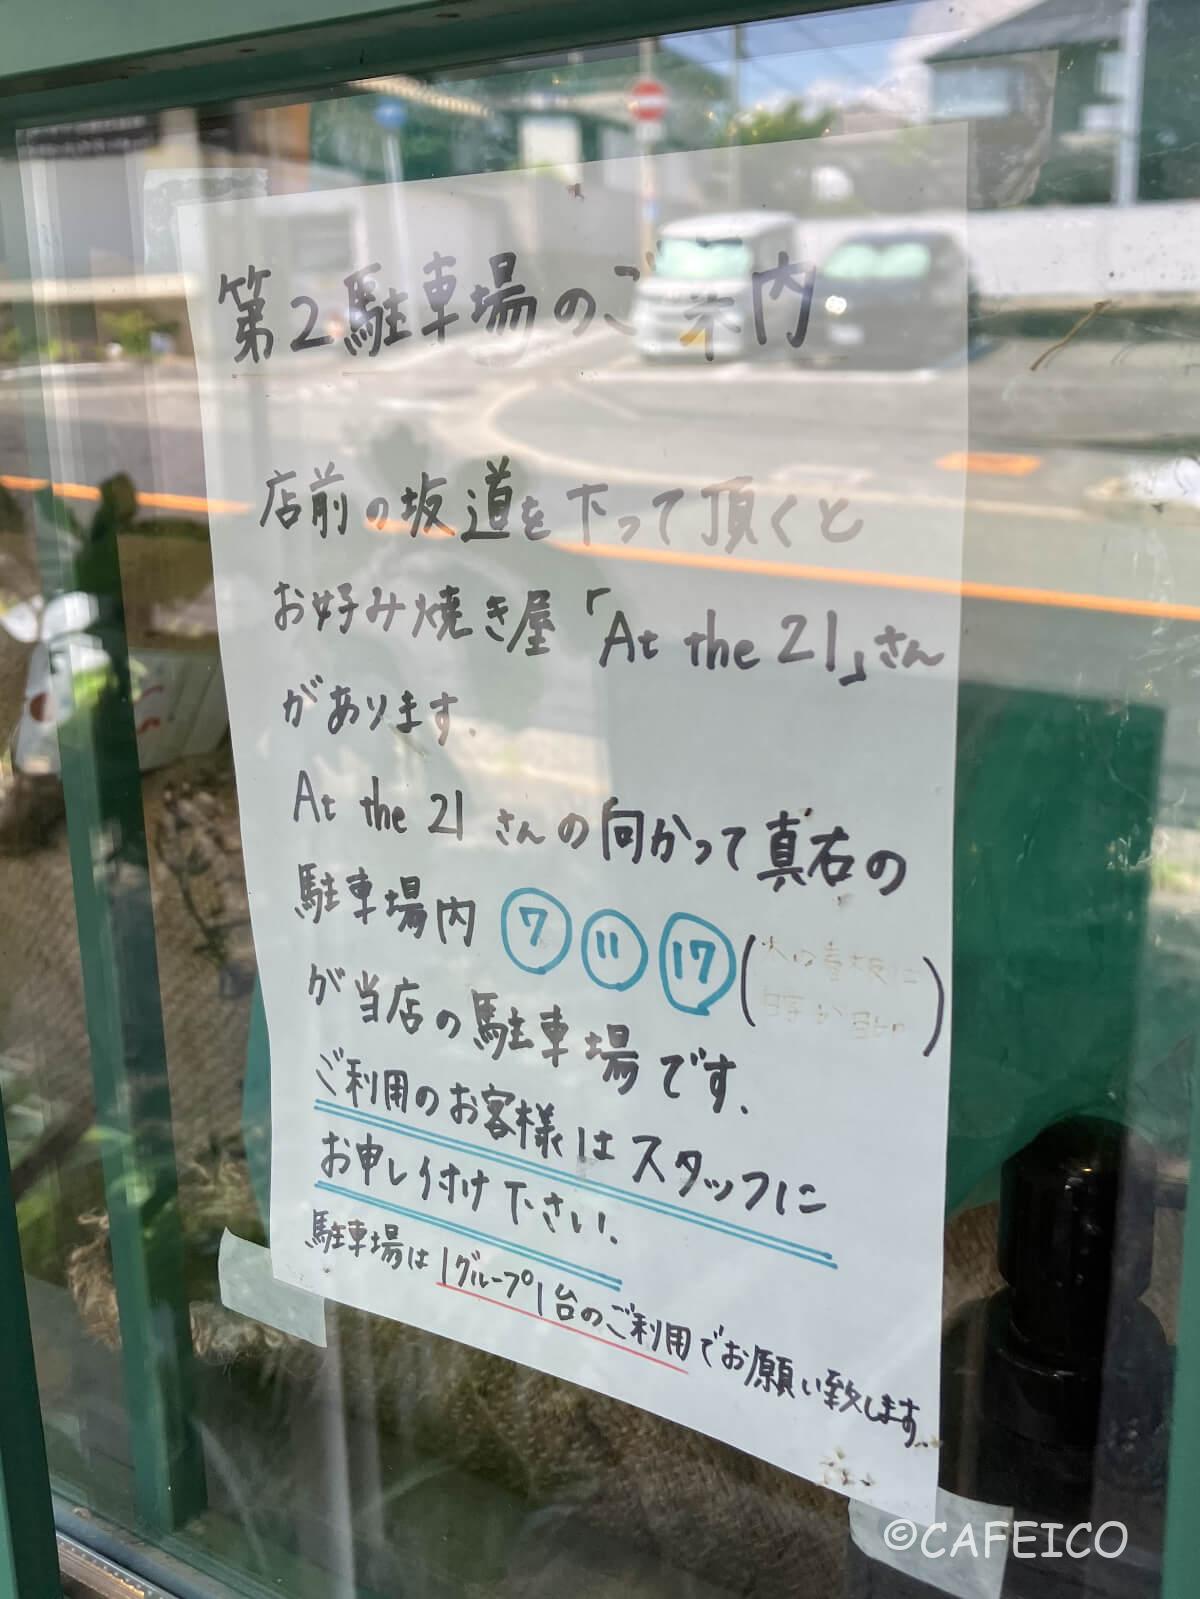 第2駐車場のご案内
店前の坂道を下って頂くと
お好み焼き屋「At the 21」さん
があります.
At the 21 さんの向かって真右の
駐車場内 ⑦ ⑪ ⑰ (
)
が当店の駐車場です.
ご利用のお客様はスタッフに
お申し付け下さい.
駐車場は1グループ1台のご利用でお願い致します.
©CAFEICO